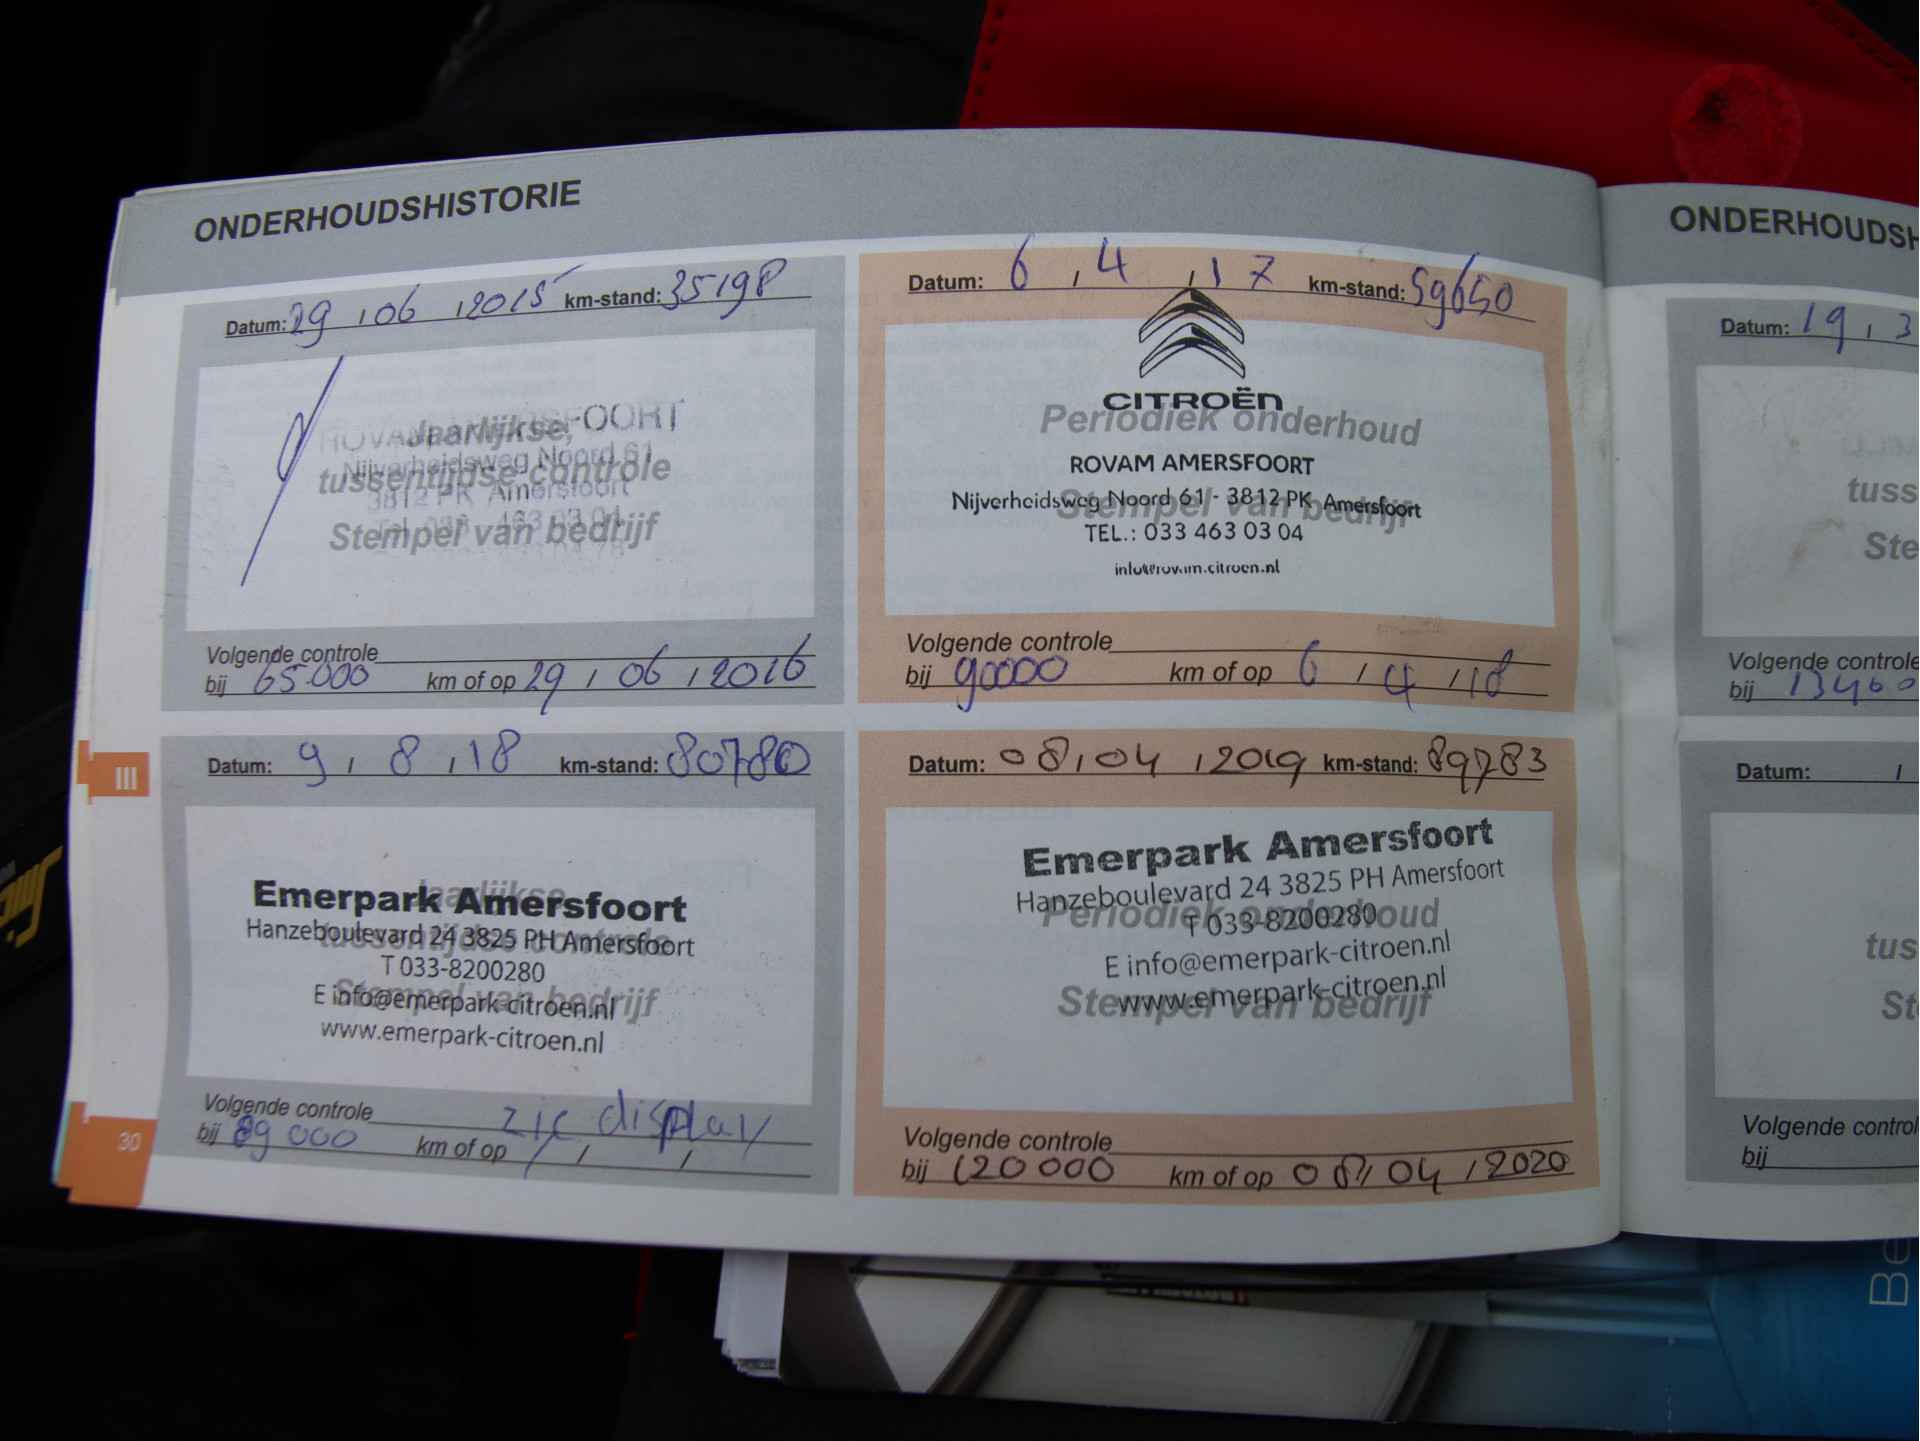 ONDERHOUDSHISTORIE
Datum: 29 / 06 / 2015 km-stand: 35198
Jaarlijkse, FOORT
Nijverheidsweg Noord 61
tussentijdse controle
3812 PK Amersfoort
463 03 04
Stempel van bedrijf
Volgende controle
bij 65 000 km of op 29 / 06 / 2016
Datum: 6 / 4 / 17 km-stand: 59650
CITROËN
Periodiek onderhoud
ROVAM AMERSFOORT
Nijverheidsweg Noord 61 - 3812 PK Amersfoort
Stempel van bedrijf
TEL.: 033 463 03 04
info@rovam.citroen.nl
Volgende controle
bij 90000 km of op 6 / 4 / 18
III
Datum: 9 / 8 / 18 km-stand: 80780
Jaarlijkse
Emerpark Amersfoort
Hanzeboulevard 24 3825 PH Amersfoort
tussentijdse controle
T 033-8200280
E info@emerpark-citroen.nl
Stempel van bedrijf
www.emerpark-citroen.nl
Volgende controle zie display
bij 89 000 km of op / /
30
Datum: 08 / 04 / 2019 km-stand: 89783
Emerpark Amersfoort
Hanzeboulevard 24 3825 PH Amersfoort
Periodiek onderhoud
T 033-8200280
E info@emerpark-citroen.nl
Stempel van bedrijf
www.emerpark-citroen.nl
Volgende controle
bij 120 000 km of op 08 / 04 / 2020
ONDERHOUDSH
Datum: 19 / 3
tuss
Ste
Volgende controle
bij 13460
Datum: /
tus
St
Volgende control
bij
Be